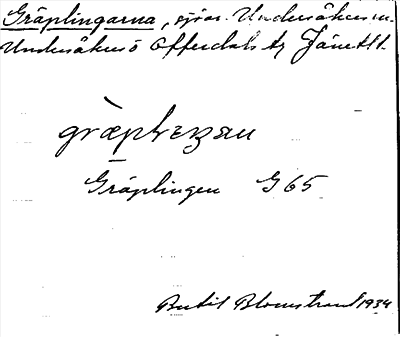 Gräplingarna, sjöar. Undersåkers sn.
Undersåkers o Offerdals tg Jämtl.
græplıŋan
Gräplingen G 65
Bertil Blomstrand 1934